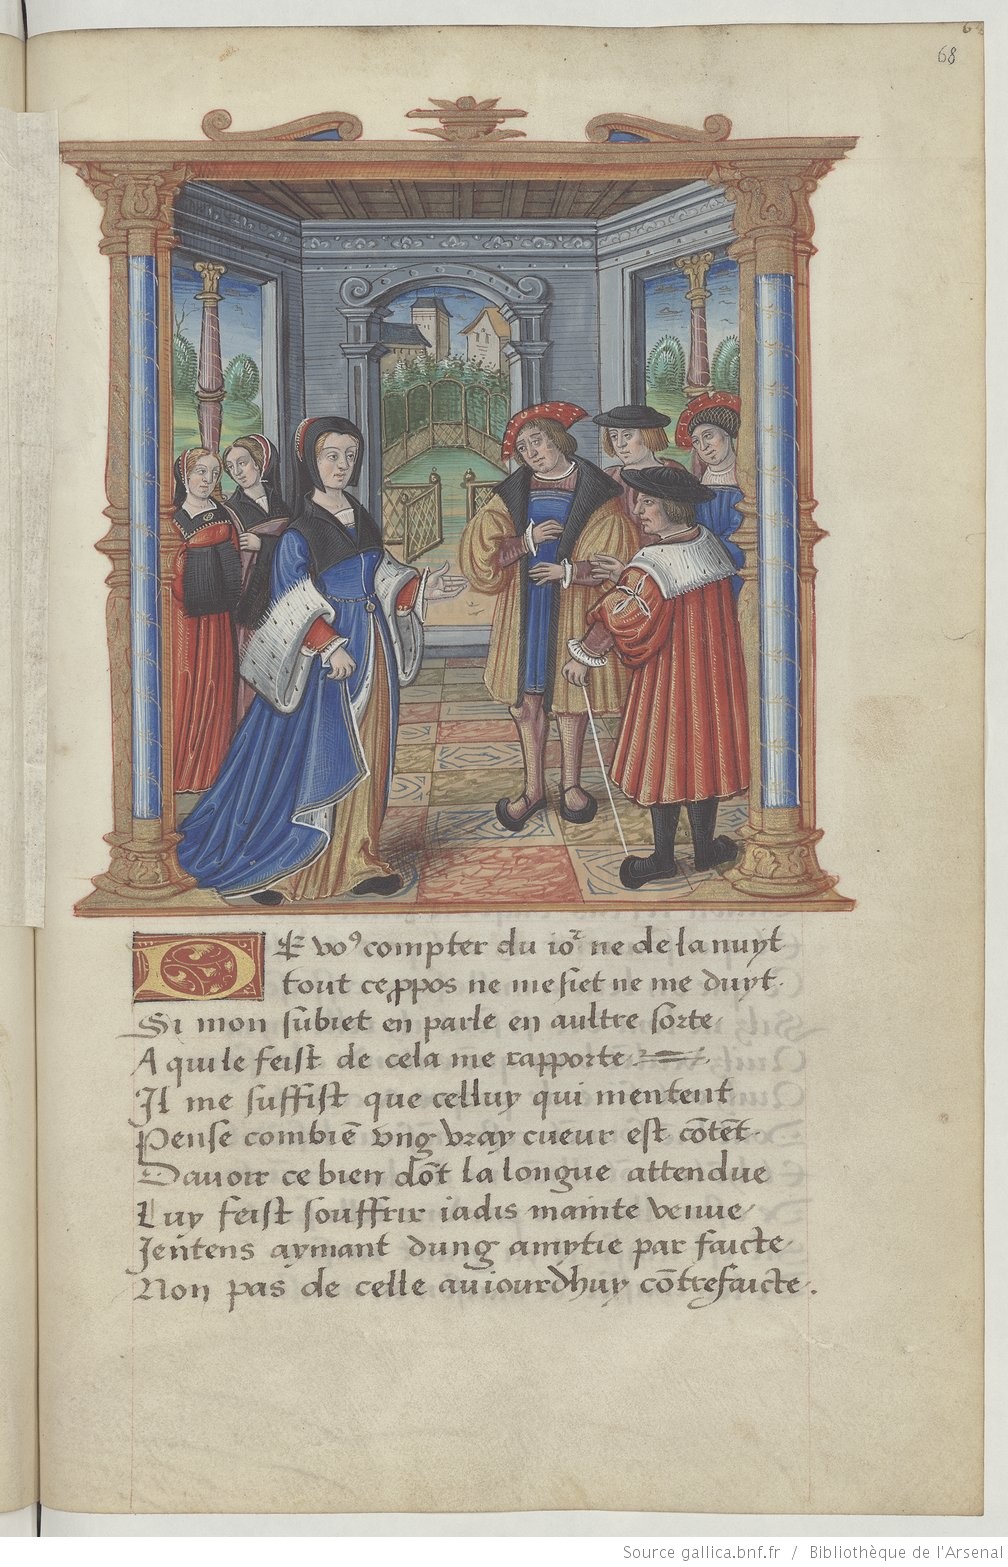 68
DE voꝰ compter du ioᷣ ne de la nuyt
tout ce ꝓpos ne me siet ne me duyt.
Si mon subiet en parle en aultre sorte
A qui le feist de cela me rapporte
Il me suffist que celluy qui mentent
Pense combiē vng vray cueur est cōtēt
Dauoir ce bien dōt la longue attendue
Luy feist souffrir iadis mainte venue
Jentens aymant dung amytie parfaicte
Non pas de celle auiourdhuy cōtrefaicte.
Source gallica.bnf.fr / Bibliothèque de l'Arsenal